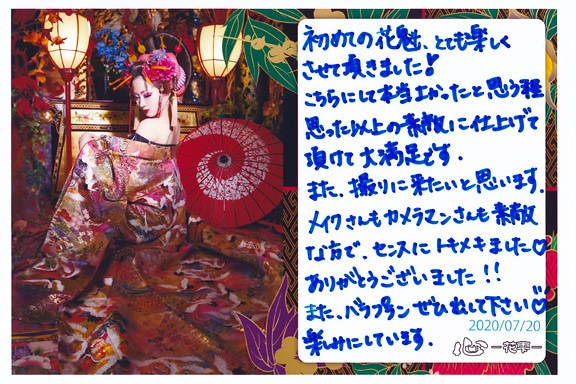 初めての花魁、とても楽しく
させて頂きました!
こちらにして本当よかったと思う程
思った以上の素敵に仕上げて
頂けて大満足です.
また、撮りに来たいと思います.
メイクさんもカメラマンさんも素敵
な方で、センスにトキメキました♡
ありがとうございました!!
また、バラプランぜひ出して下さい♡
2020/07/20
楽しみにしています.
心 -花雫-